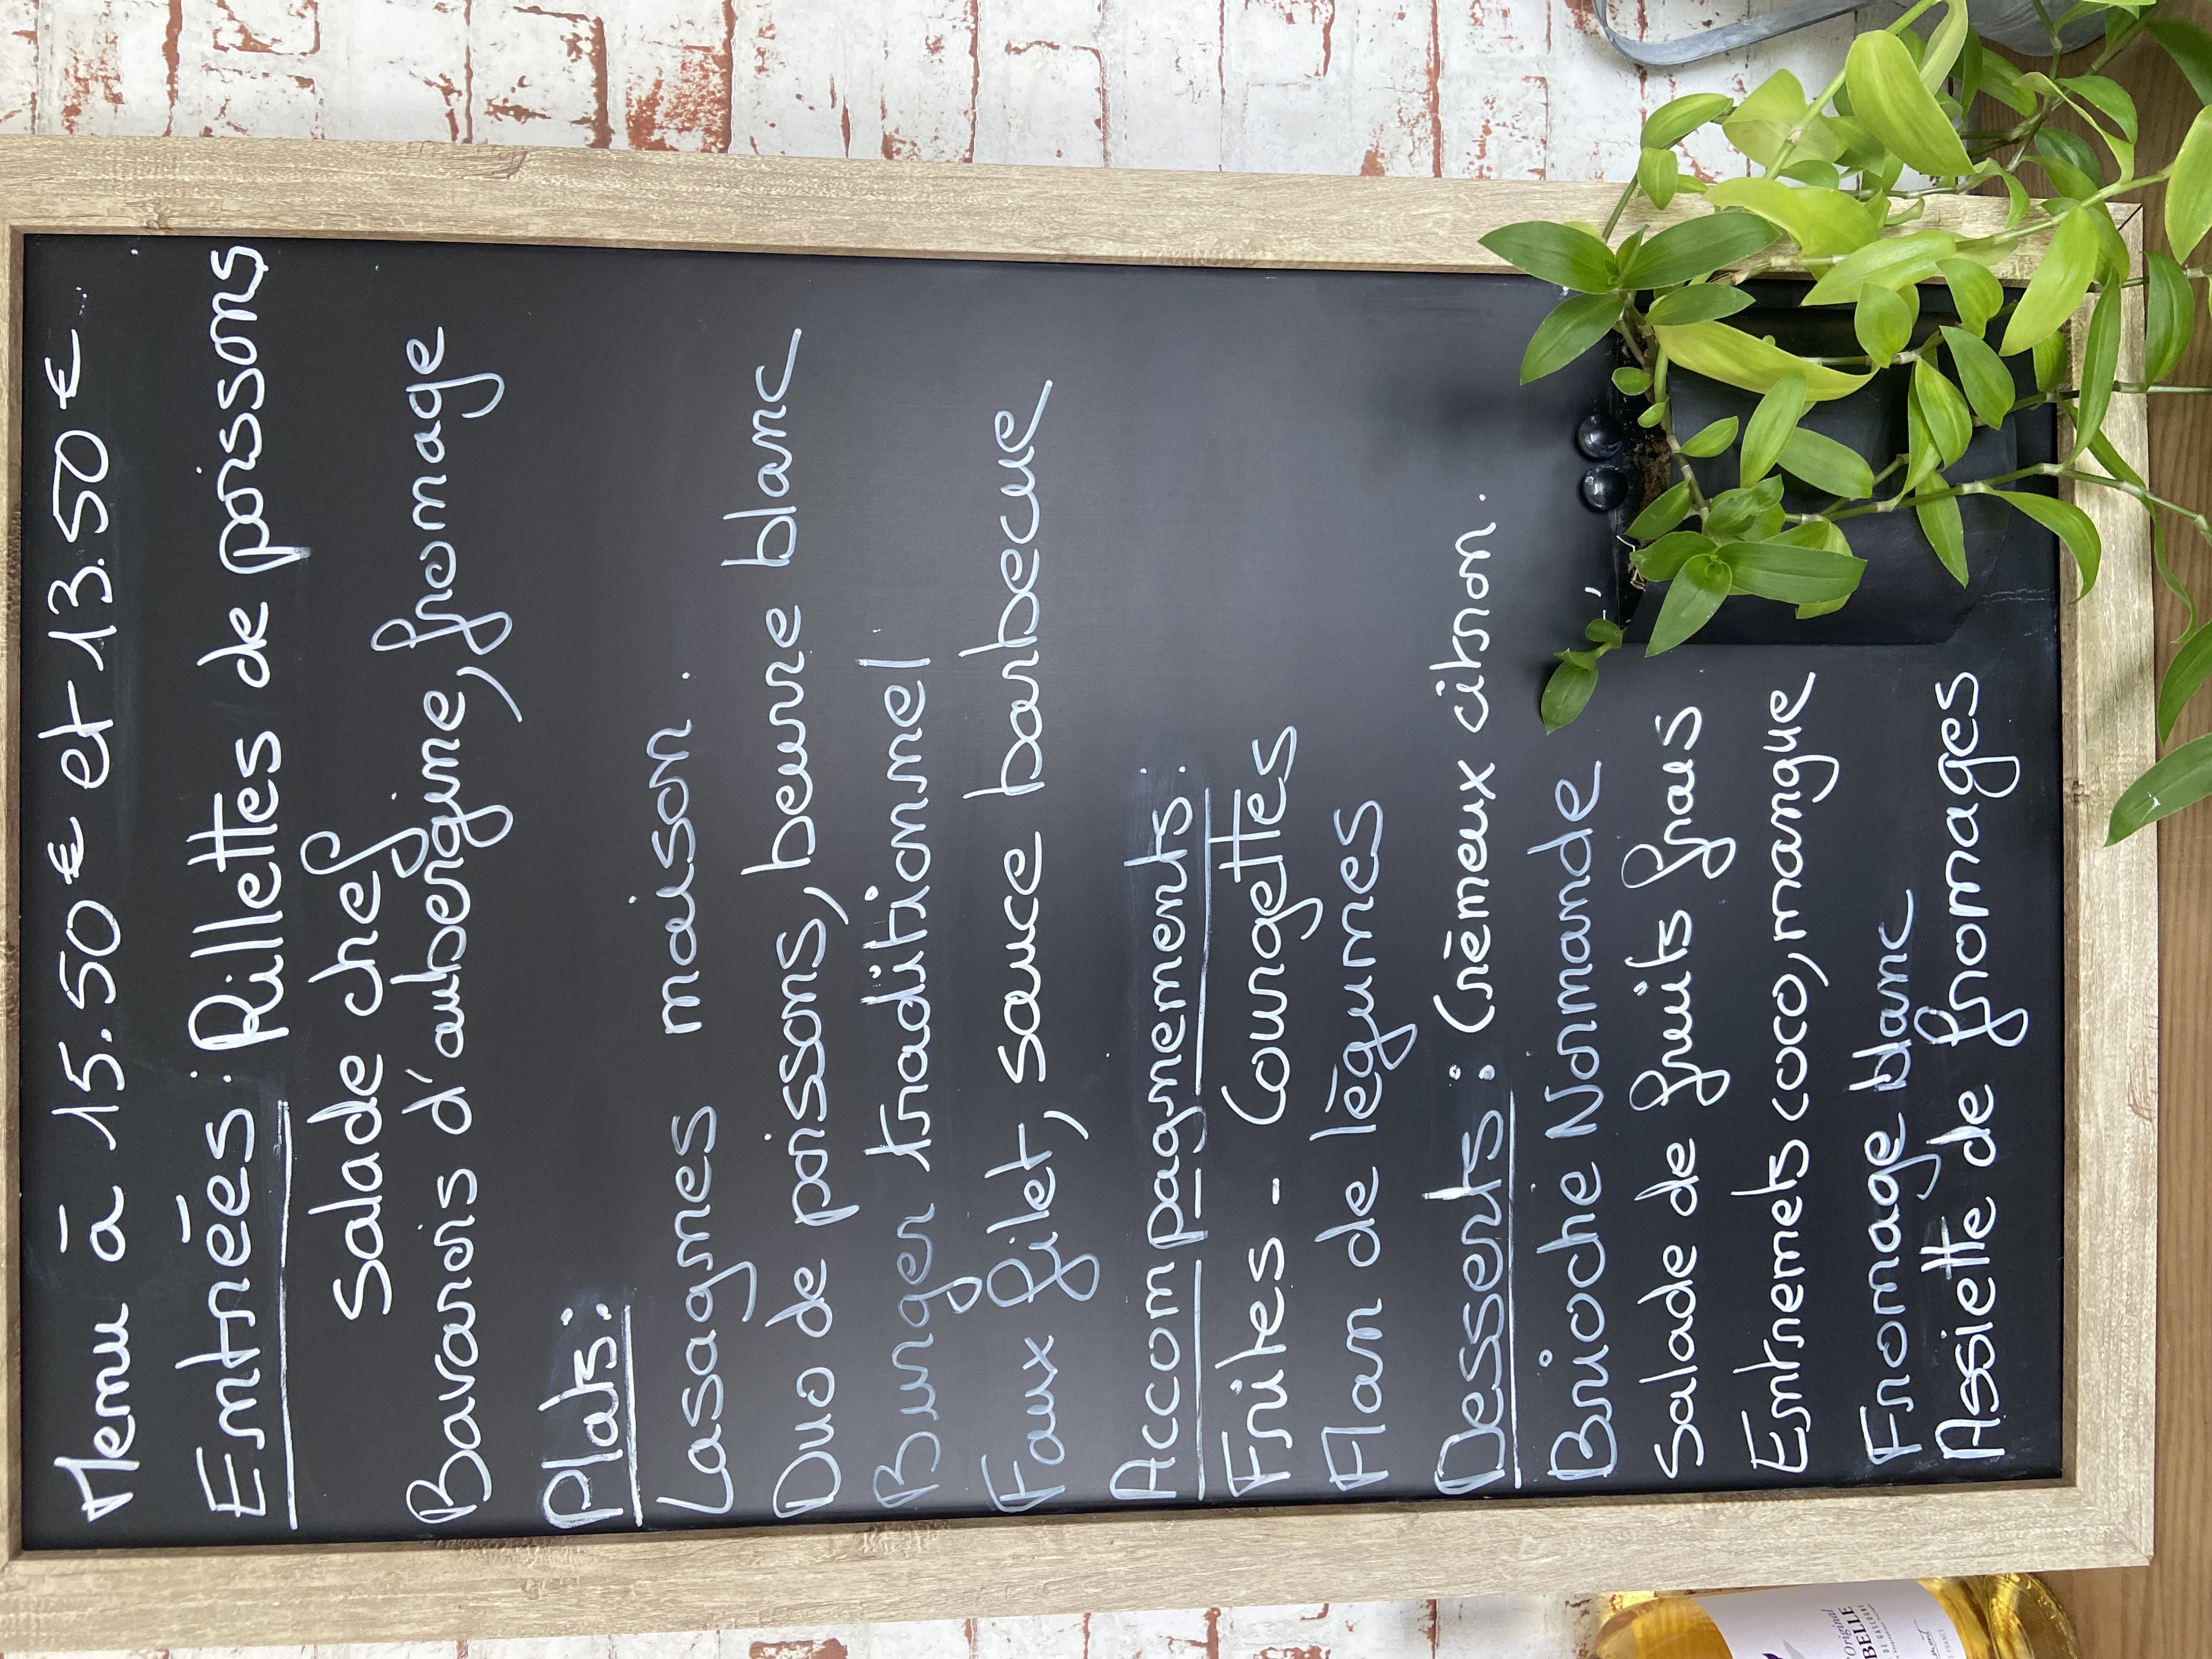 Menu à 15.50 € et 13.50 €
Entrées : Rillettes de poissons
Salade chef
Bavarois d'aubergine, fromage
Plats :
Lasagnes maison.
Duo de poissons, beurre blanc
Burger traditionnel
Faux filet, sauce barbecue
Accompagnements :
Frites - Courgettes
Flan de légumes
Desserts : Crèmeux citron.
Brioche Normande
Salade de fruits frais
Entremets coco, mangue
Fromage blanc
Assiette de fromages
l'Original
BELLE
DE GASCOGNE